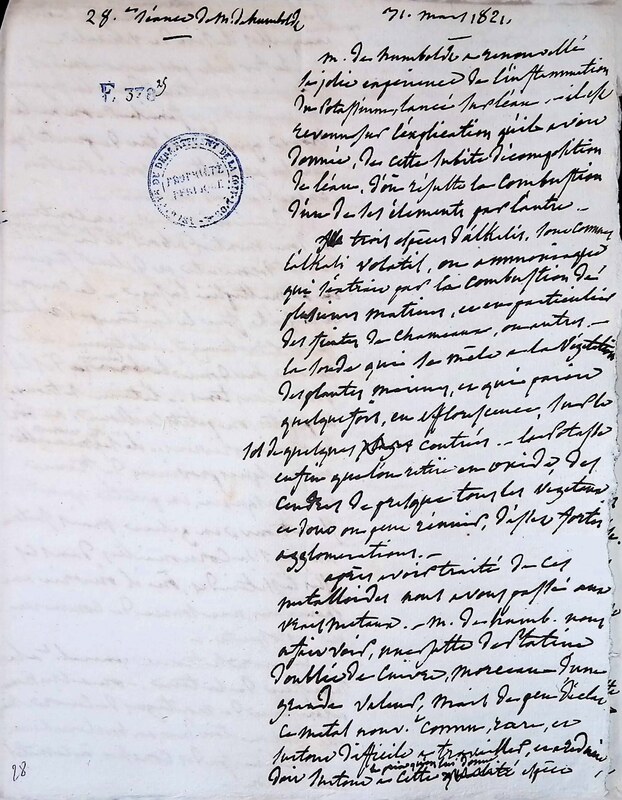 28.me séance de M. de humboldt
31. mars 1821.
F. 378 25
ARCHIVES DU DÉPARTEMENT DE LA CÔTE-D'OR
PROPRIÉTÉ
PUBLIQUE
m. de humboldt a renouvellé
la jolie expérience de l'inflammation
du Potassium, lancé sur l'eau. — il est
revenu sur l'explication qu'il a avoit
donnée, de cette subite décomposition
de l'eau, d'où résulte la combustion
d'un de ses élémens par l'autre —
trois espèces d'alkalis, sont connues
l'alkali volatil, ou ammoniaque
qui s'extrait par la combustion de
plusieurs matieres, et en particulier
des fientes de chameaux, ou autres. —
la soude qui se mêle a la végétation
des plantes marines, et qui paroit
quelquefois, en efflorescence, sur le
sol de quelques contrées. — la Potasse
enfin que l'on retire en oxide, des
cendres de presque tous les végétaux
et dont on peut réunir, d'assez fortes
agglomérations. —
après avoir traité de ces
metalloides nous avons passé aux
vrais metaux. — m. de humb. nous
a fait voir, une de Platine
doublée de cuivre, morceau d'une
grande valeur, mais de peu d'éclat
ce metal nouv.t connu, rare, et
surtout difficile a travailler,
doit surtout a cette espèce
28